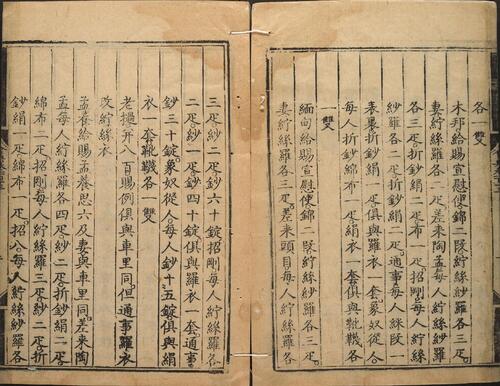 各雙
木邦給賜宣慰使錦二叚紵絲紗羅各三疋
妻紵絲羅各二疋差來陶孟每人紵絲紗羅
各三疋折鈔絹二疋布一疋招剛每人紵絲
紗羅各二疋折鈔絹二疋通事每人綵叚一
表裏折鈔絹一疋俱與羅衣一套象奴從人
每人折鈔綿布一疋絹衣一套俱與靴韈各
一雙
緬甸給賜宣慰使錦二叚紵絲紗羅各三疋
妻紵絲羅各三疋差來頭目每人紵絲羅各
三疋紗一疋鈔六十錠招剛每人紵絲羅各
二疋紗一疋鈔四十錠俱與羅衣一套通事
鈔三十錠象奴從人每人鈔十五錠俱與絹
衣一套靴韈各一雙
老撾并八百賜例俱與車里同但通事羅衣
改紵絲衣
孟養給賜孟養思六及妻與車里同差來陶
孟每人紵絲羅各四疋紗二疋折鈔絹二疋
綿布二疋招剛每人紵絲羅三疋紗二疋折
鈔絹一疋綿布一疋招八每人紵絲紗羅各